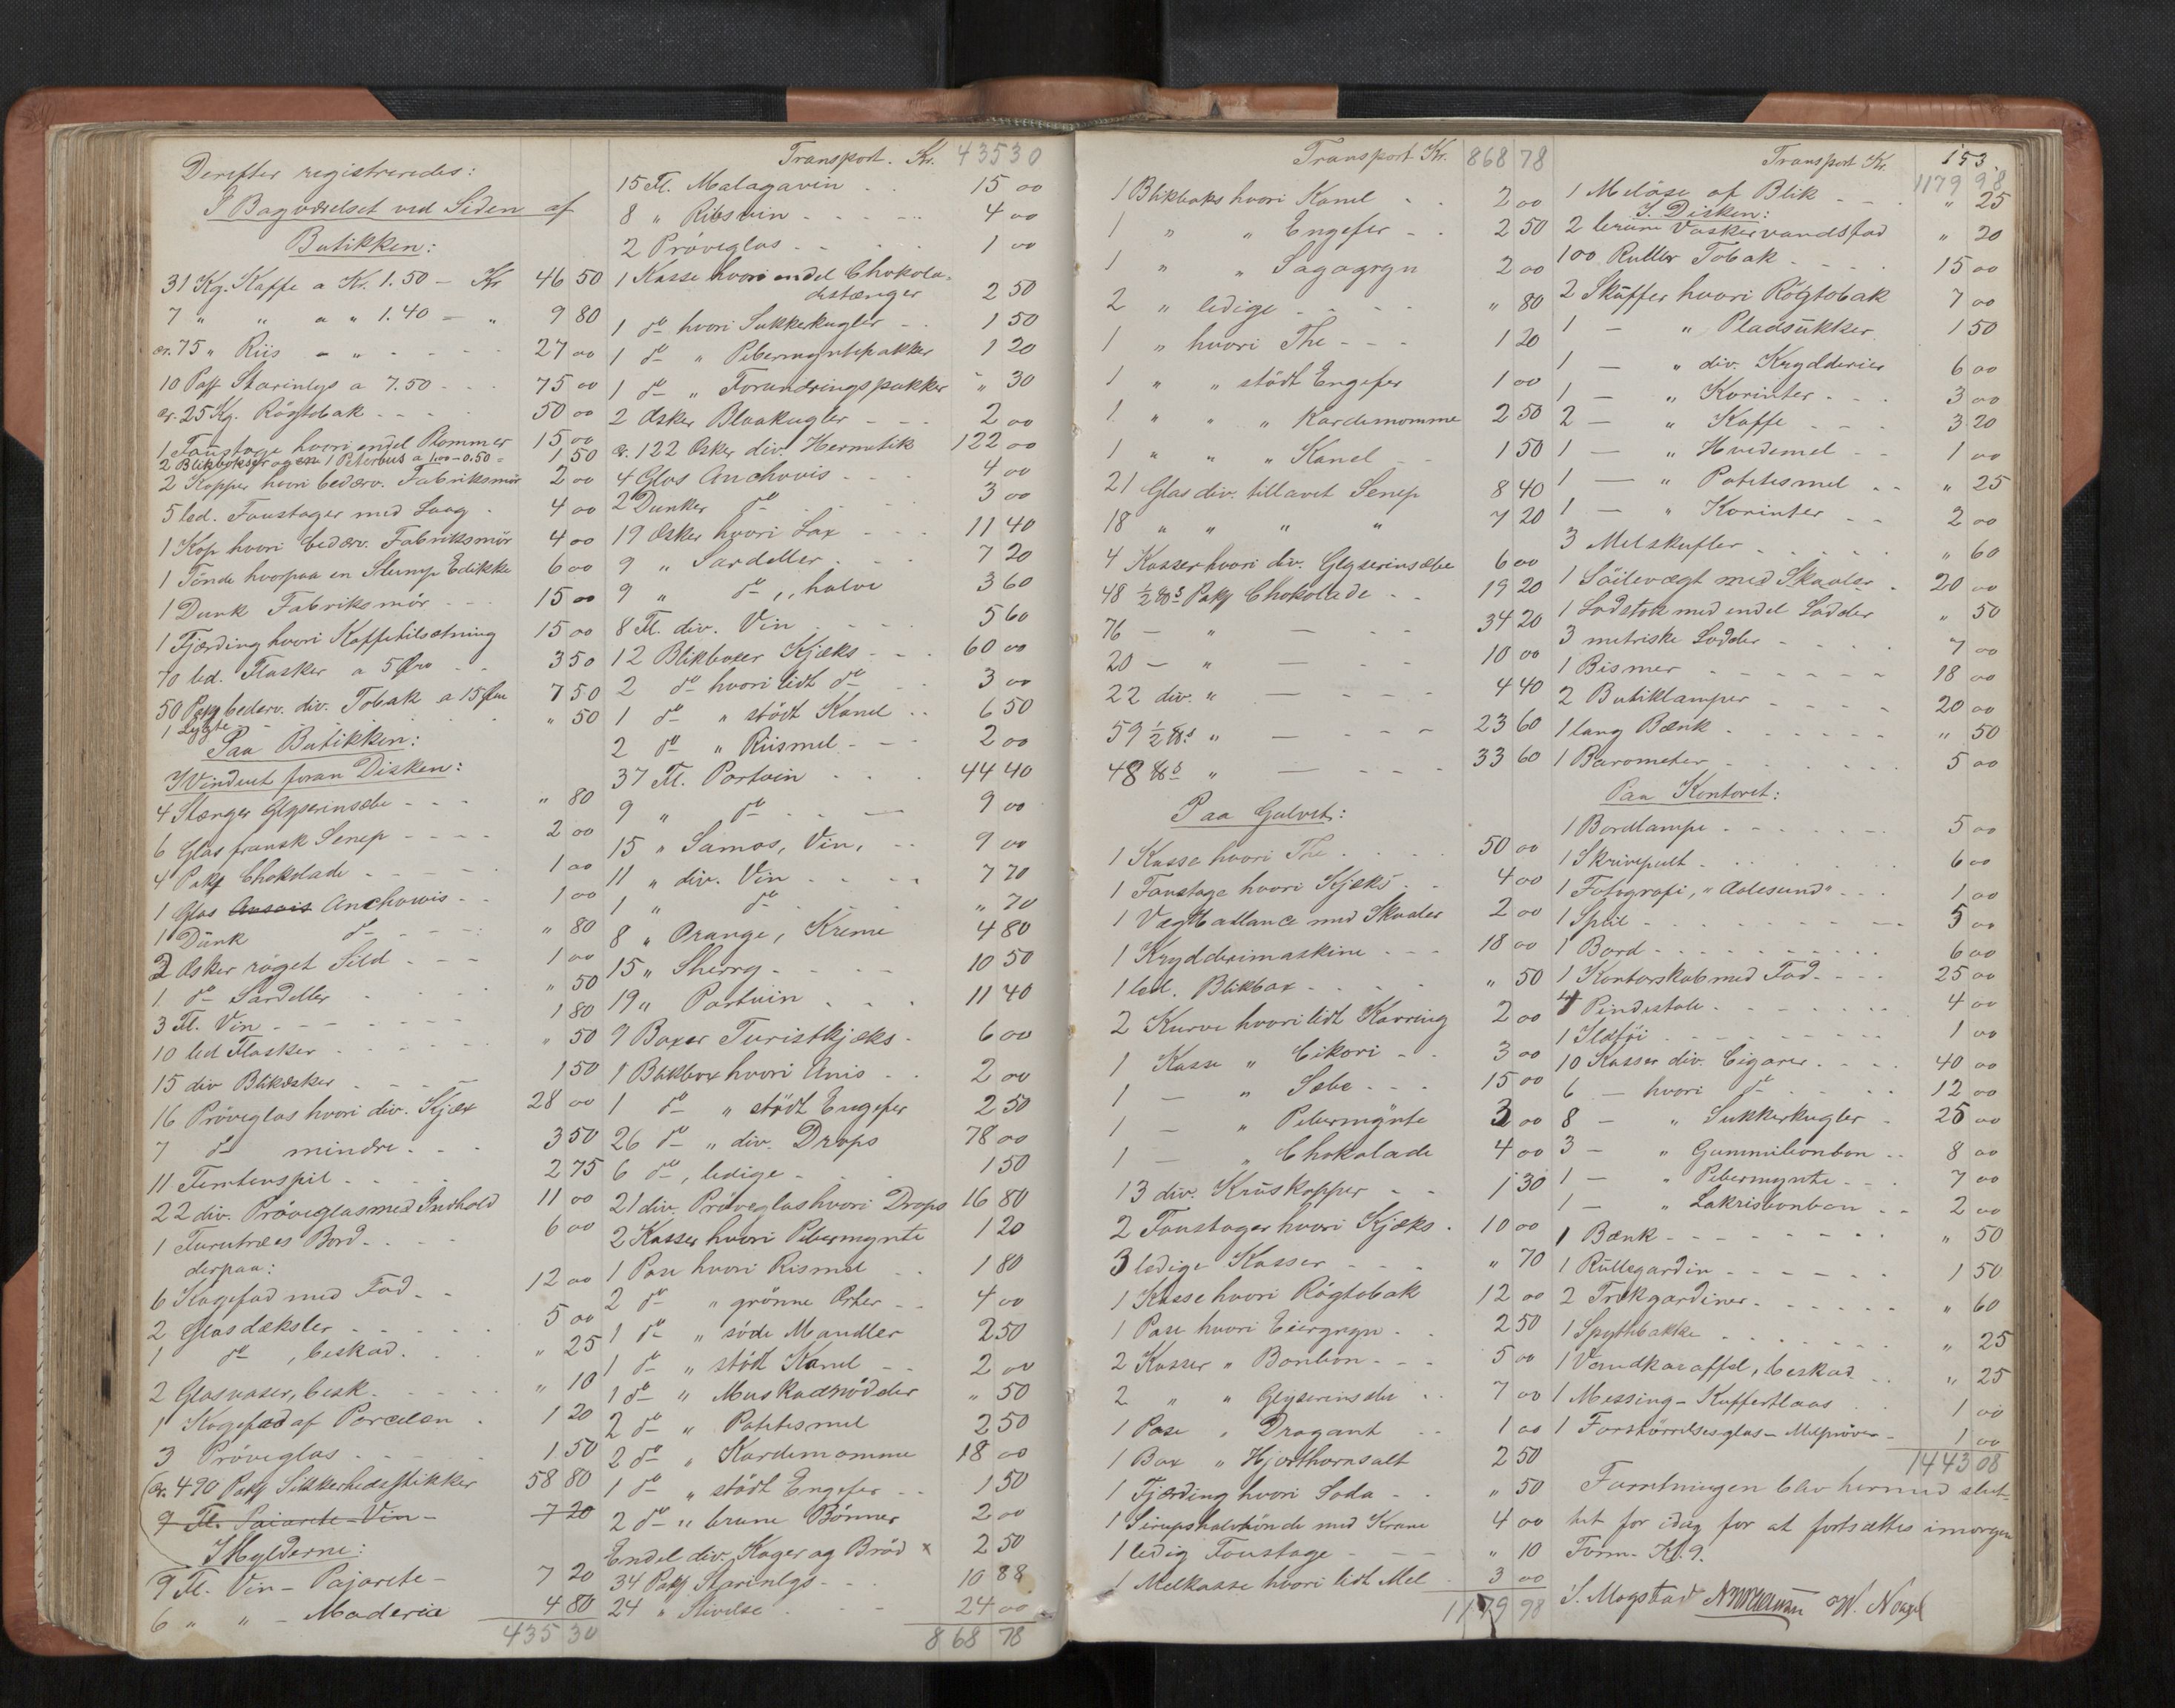 Derefter registreredes:
I Bagværelset ved Siden af
Butikken:
31 Kg. Kaffe a Kr. 1.50 - Kr 46 50
7 " " a " 1.40 - " 9 80
cr. 75 " Riis - " - 27 00
10 Pap Starinlys a 7.50 - - - 75 00
cr. 25 Kg. Rögtobak - - - 50 00
1 Foustage hvori endel Plommer 15 00
2 Blikbokser og 1 a 1.00 - 0.50 = 1 50
2 Kopper hvori bedærv. Fabriksmör 2 00
5 led. Foustager med Laag - 4 00
1 Kop hvori bedærv. Fabriksmör 4 00
1 Tönde hvorpaa en Slump Edikke 6 00
1 Dunk Fabriksmör - - - 15 00
1 Fjærding hvori Kaffetilsætning 15 00
70 led. Flasker a 5 Øre - - 3 50
50 Pakk bedærv. div. Tobak a 15 Øre 7 50
1 Lygte - - " 50
Paa Butikken:
I Vinduet foran Disken:
4 Stænger Glyserinsæbe - - - " 80
6 Glas fransk Senep - - - - 2 00
4 Pakk Chokolade - - - - 1 00
1 Glas Ansois Anchowis - - 1 00
1 Dunk do - - - - " 80
2 Æsker röget Sild - - - 1 00
1 do Sardeller - - - " 50
3 Fl. Vin - - - - - - 1 80
10 led Flasker - - - - - " 50
15 div Blikæsker - - - - 1 50
16 Pröveglas hvori div. Kjæx 28 00
7 do mindre - - - 3 50
11 Femtenspil - - - - 2 75
22 div. Pröveglas med Indhold 11 00
1 Furutræes Bord - - - 6 00
derpaa:
6 Kagefad med Fod - - 12 00
2 Glasdæksler - - - - 5 00
1 do , beskad. - - " 25
2 Glasvaser, besk. - - - " 10
1 Kagefad af Porcelæn - 1 20
3 Pröveglas - - - - 1 50
cr. 490 Pakk Sikkerhedsstikker 58 80
9 Fl. Paiarete-Vin - 7 20
I Hylderne:
9 Fl. Vin - Pajarete - 7 20
6 " " - Maderia 4 80
435 30
Transport. Kr. 435 30
15 Fl. Malagavin - - 15 00
8 " Ribsvin - - - - - 4 00
2 Pröveglas - - - - 1 00
1 Kasse hvori endel Chokola-
destænger 2 50
1 do hvori Sukkerkugler - - 1 50
1 do " Pebermyntepakker 1 20
1 do " Forundringspakker " 30
2 Æsker Blaakugler - - - 2 00
cr. 122 Æsker div. Hermetik 122 00
4 Glas Anchovis - - - 4 00
2 Dunker do - - - 3 00
19 Æsker hvori Lax - - - 11 40
9 " Sardeller - - - 7 20
9 " do , halve 3 60
8 Fl. div. Vin - - - - 5 60
12 Blikboxer Kjæks - - - 60 00
2 do hvori lidt do - - 3 00
1 do " stödt Kanel - - 6 50
2 do " Riismel - - - 2 00
37 Fl. Portvin - - - 44 40
9 " do - - - 9 00
15 " Samos, Vin, - - 9 00
11 " div. Vin - - - - 7 70
1 " do - - - - " 70
8 " Orange, Kreme 4 80
15 " Sherry - - - - - 10 50
19 " Portvin - - - 11 40
9 Boxer Turistkjæks - 6 00
1 Blikbox hvori Anis - - 2 00
1 do " stödt Engefer 2 50
26 do " div. Drops 78 00
6 do , ledige - - - 1 50
21 div. Pröveglas hvori Drops 16 80
2 Kasser hvori Pebermynte 1 20
1 Pose hvori Rismel - - 1 80
2 do " grönne Erter - - 4 00
1 do " söde Mandler 2 50
1 do " stödt Kanel - - 2 00
1 do " Muskadnödder " 50
2 do " Potetesmel 2 50
2 do " Kardemomme 18 00
1 do " stödt Engefer - - 1 50
2 do " brune Bönner 2 00
Endel div. Kager og Bröd x 2 50
34 Pakk Starinlys - - - 10 88
24 " Stivelse - - - 24 00
868 78
Transport Kr. 868 78
1 Blikboks hvori Kanel - - 2 00
1 " " Engefer - - 2 50
1 " " Sagogryn 2 00
2 " ledige - - - - " 80
1 " hvori The - - - 1 20
1 " " stödt Engefer 1 00
1 " " " Kardemomme 2 50
1 " " " Kanel - - 1 50
21 Glas div. tillavet Senep 8 40
18 " " " " 7 20
4 Kasser hvori div. Glyserinsæbe 6 00
48 ½ ℔s Pakk Chokolade - - 19 20
76 — " — - - 34 20
20 — " — - - 10 00
22 div. " — - - - 4 40
59 ½ ℔s " — - - - 23 60
48 ℔s " — - - - 33 60
Paa Gulvet:
1 Kasse hvori The - - - 50 00
1 Foustage hvori Kjæks - - 4 00
1 Vægtballance med Skaaler 2 00
1 Krydderimaskine - - - 18 00
1 led. Blikbox - - - - " 50
2 Kurve hvori lidt Karring 2 00
1 Kasse " Cikori - - 3 00
1 — " Sæbe - - - 15 00
1 — " Pebermynte 3 00
1 — " Chokolade 4 00
13 div. Kruskopper - - 1 30
2 Foustager hvori Kjæks - 10 00
3 ledige Kasser - - - " 70
1 Kasse hvori Rögtobak 12 00
1 Pose hvori Eiergryn - - 2 50
2 Kasser " Bonbon - - - 5 00
2 " " Glyserinsæbe - - 7 00
1 Pose " Dragant - - 1 00
1 Box " Hjorthornsalt 2 50
1 Fjærding hvori Soda - - " 50
1 Sirupshalvtönde med Krane 4 00
1 ledig Foustage - - - " 10
1 Melkasse hvori lidt Mel - 3 00
1179 98
153.
Transport Kr. 1179 98
1 Meløse af Blik - - - " 25
I Disken:
2 brune Vaskervandsfad " 20
100 Ruller Tobak - - - 15 00
2 Skuffer hvori Rögtobak 7 00
1 — " Pladsukker 1 50
1 — " div. Krydderier 6 00
1 — " Korinter - - - 3 00
2 — " Kaffe - - - 3 20
1 — " Hvedemel - - 1 00
1 — " Potetesmel - - " 25
1 — " Korinter - - 2 00
3 Melskufler - - - - - " 60
1 Söilevægt med Skaaler - 20 00
1 Lodstok med endel Lodder " 50
3 metriske Lodder - - - - 7 00
1 Bismer - - - - - - - 18 00
2 Butiklamper - - - - 20 00
1 lang Bænk - - - - - " 50
1 Barometer - - - - - 5 00
Paa Kontoret:
1 Bordlampe - - - - - - 5 00
1 Skrivepult - - - - - - 6 00
1 Fotografi, "Aalesund" - - 1 00
1 Speil - - - - - - - - 5 00
1 Bord - - - - - - - - 6 00
1 Kontorskab med Fod - - - 25 00
4 Pindestole - - - - - - 4 00
1 Ildföi - - - - - - - 1 00
10 Kasser div. Cigarer - - - 40 00
6 — hvori do - - - - 12 00
8 — " Sukkerkugler - 25 00
3 — " Gummibonbon - - 8 00
1 — " Pebermynte - - - 7 00
1 — " Lakrisbonbon - - 2 00
1 Bænk - - - - - - - " 50
1 Rullegardin - - - - - 1 50
2 Trækgardiner - - - - - " 60
1 Spyttebakke - - - - - " 25
1 Vandkaraffel, beskad - - " 25
1 Messing-Kuffertlaas - - 1 00
1 Forstörrelsesglas - Melpröver - 1 00
1443 08
Forretningen blev hermed slut-
tet for idag for at fortsættes imorgen
Form. Kl. 9.
S. Mogstad W. Nagel